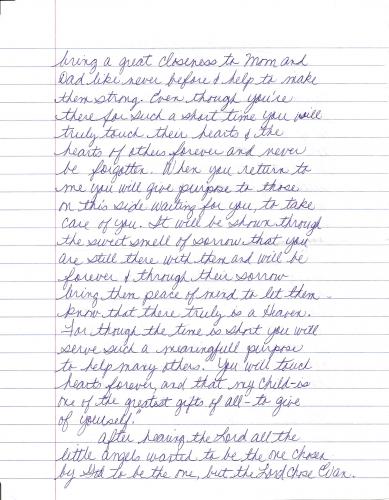 bring a great closeness to Mom and
Dad like never before & help to make
them strong. Even though you're
there for such a short time you will
truly touch their hearts & the
hearts of others forever and never
be forgotten. When you return to
me you will give purpose to those
on this side waiting for you, to take
care of you. It will be shown through
the sweet smell of sorrow that you
are still there with them and will be
forever & through their sorrow
bring them peace of mind to let them
know that there truly is a Heaven.
For though the time is short you will
serve such a meaningfull purpose
to help many others. You will touch
hearts forever, and that my child is
one of the greatest gifts of all - to give
of yourself."
After hearing the Lord all the
little angels wanted to be the one chosen
by God to be the one, but the Lord chose Evan.